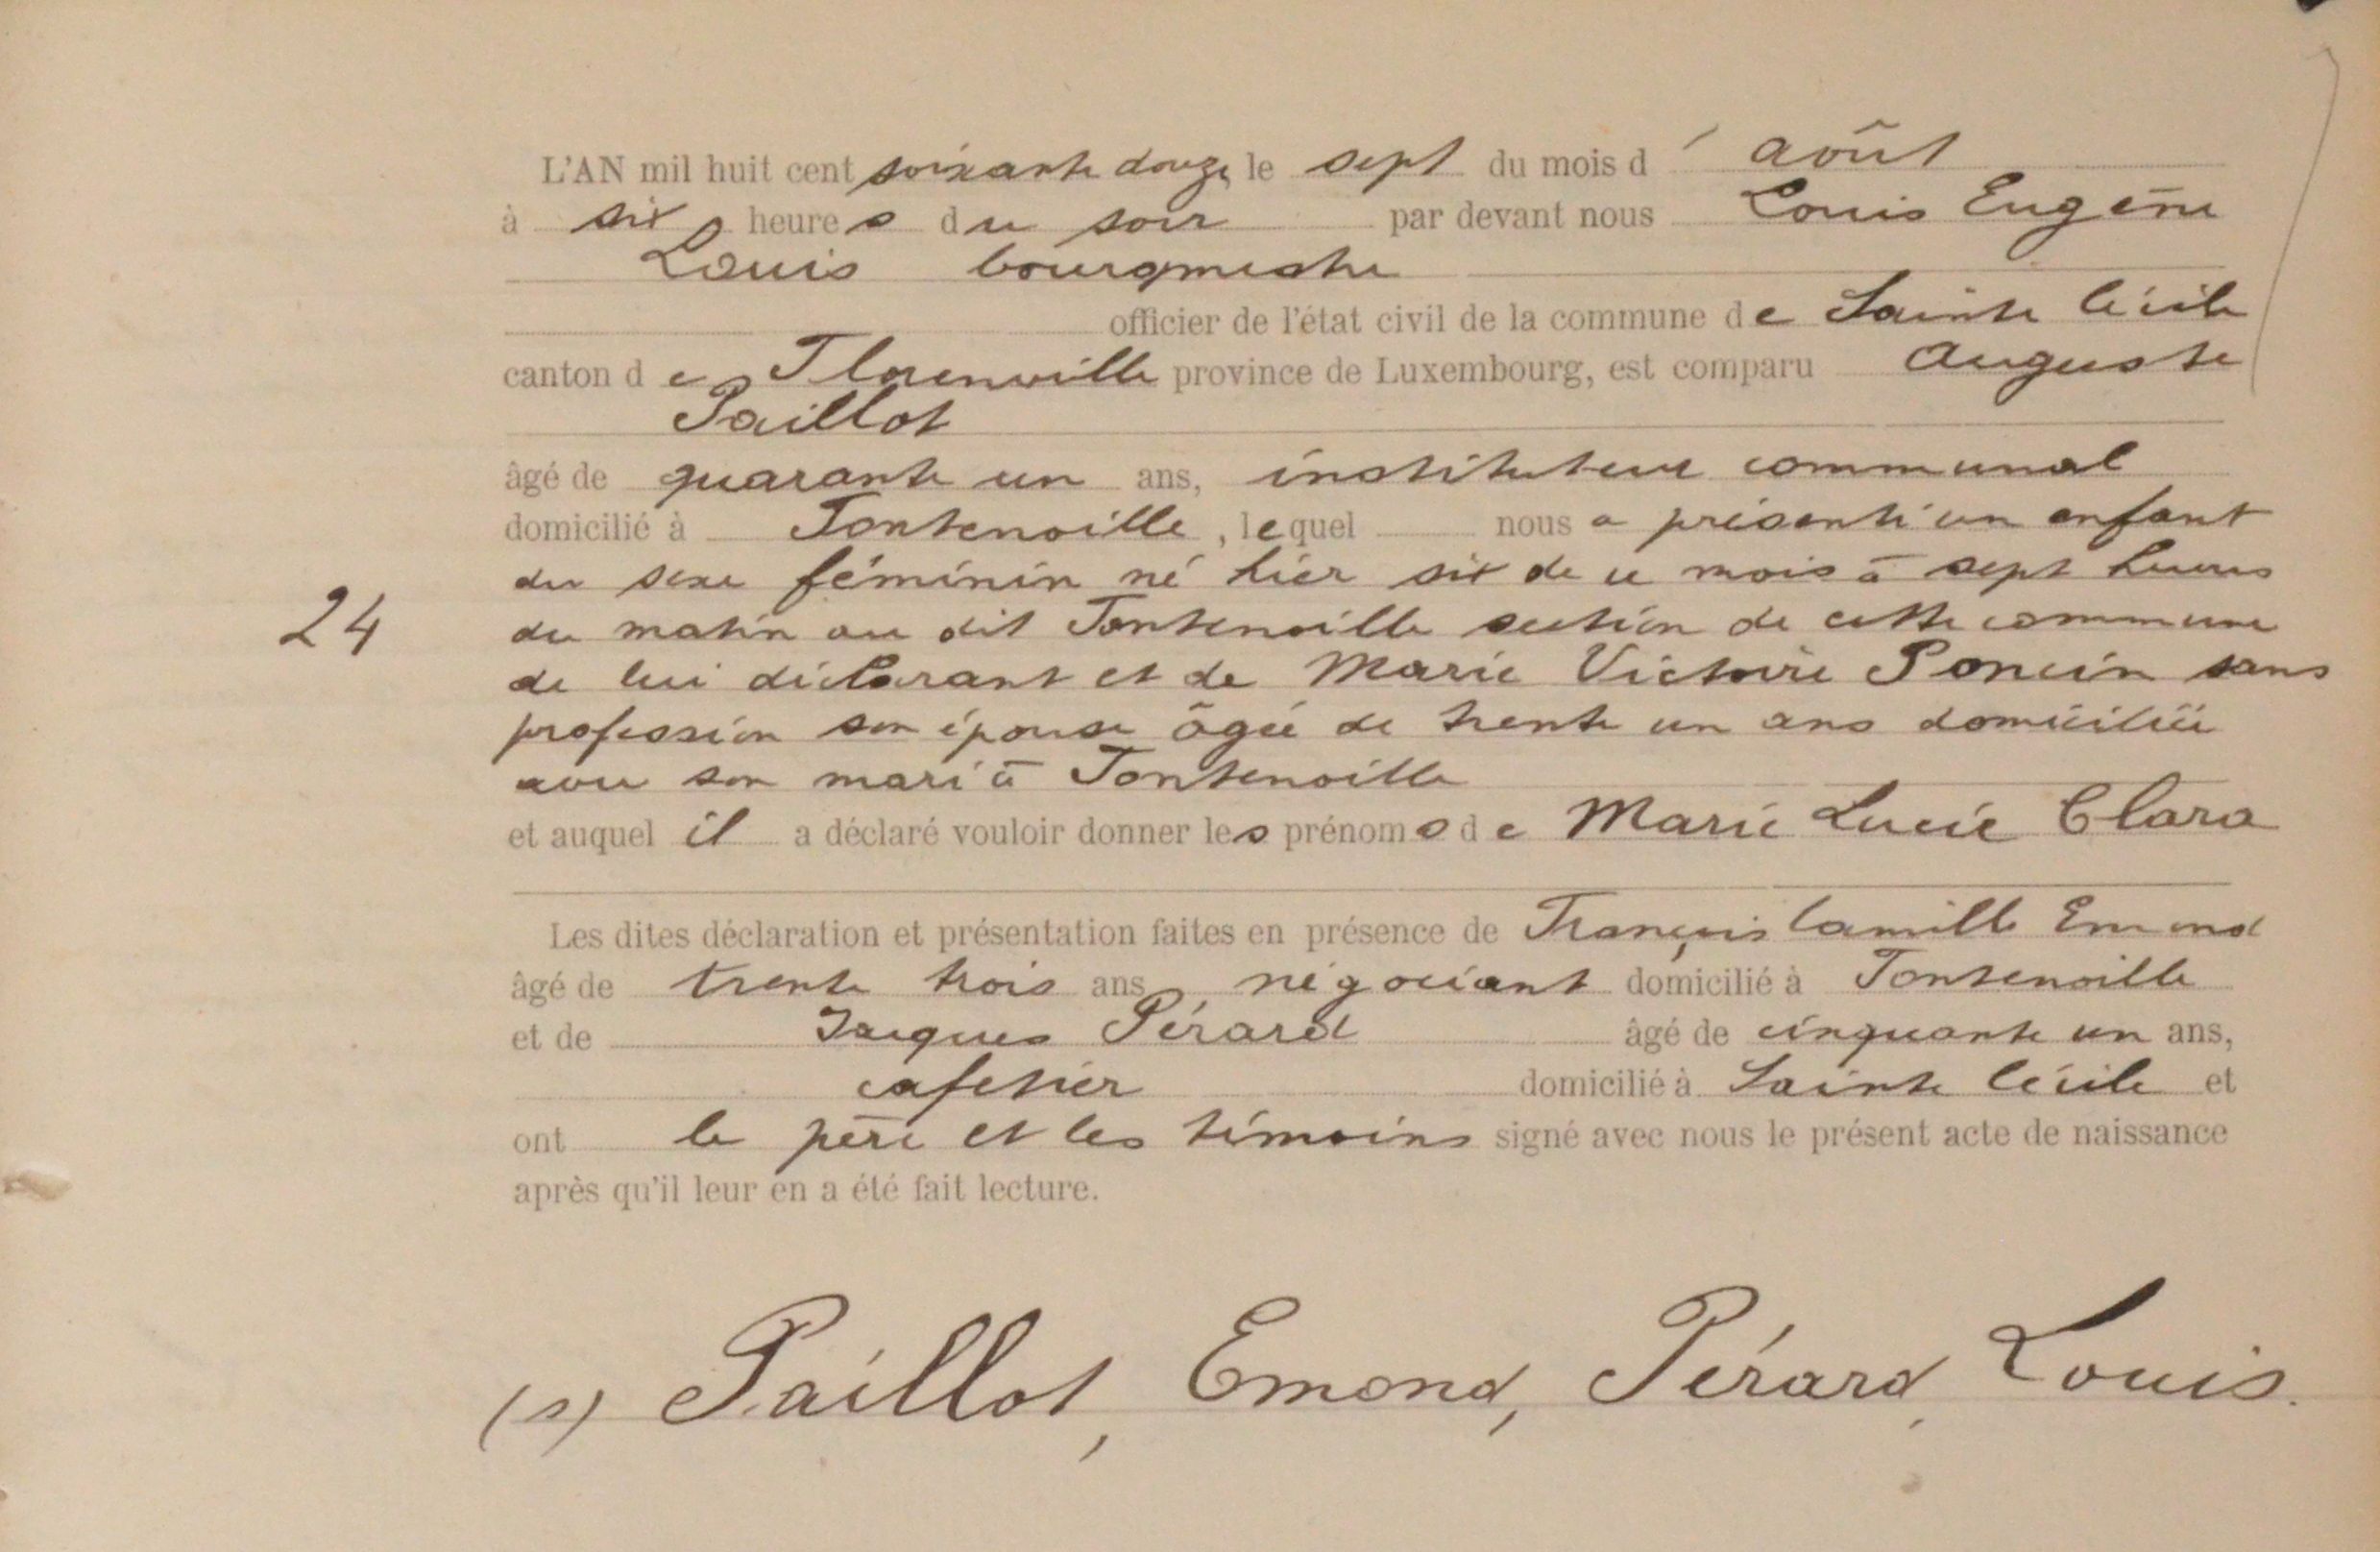 L'AN mil huit cent soixante douze le sept du mois d'août
à six heures du soir par devant nous Louis Eugène
Louis bourgmestre
officier de l'état civil de la commune de Sainte Cécile
canton de Florenville province de Luxembourg, est comparu Auguste
Paillot
âgé de quarante un ans, instituteur communal
domicilié à Fontenoille, lequel nous a présenté un enfant
du sexe féminin né hier six de ce mois à sept heures
24 du matin au dit Fontenoille section de cette commune
de lui déclarant et de Marie Victoire Poncin sans
profession son épouse âgée de trente un ans domiciliée
avec son mari à Fontenoille
et auquel il a déclaré vouloir donner les prénoms de Marie Lucie Clara
Les dites déclaration et présentation faites en présence de François Camille Emond
âgé de trente trois ans, négociant domicilié à Fontenoille
et de Jacques Pérard âgé de cinquante un ans,
cafetier domicilié à Sainte Cécile et
ont le père et les témoins signé avec nous le présent acte de naissance
après qu'il leur en a été fait lecture.
(s) Paillot, Emond, Pérard, Louis.